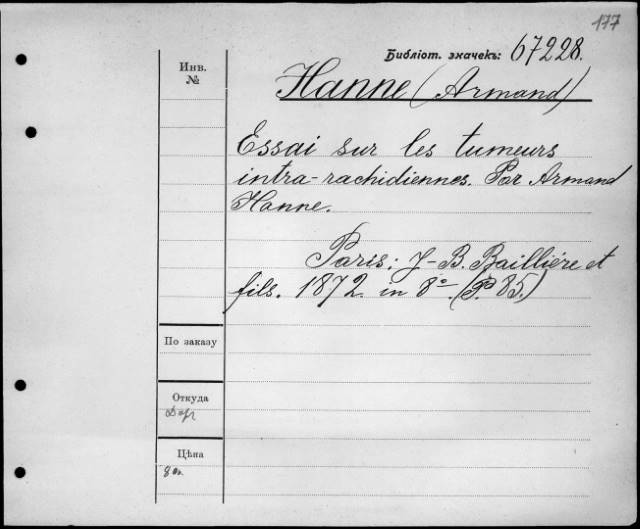 177
Библіот. значекъ: 67228.
Инв.
№
Hanne (Armand)
Essai sur les tumeurs
intra-rachidiennes. Par Armand
Hanne.
Paris: J-B. Baillière et
fils. 1872. in 8º (P. 85.)
По заказу
Откуда
Дар
Цѣна